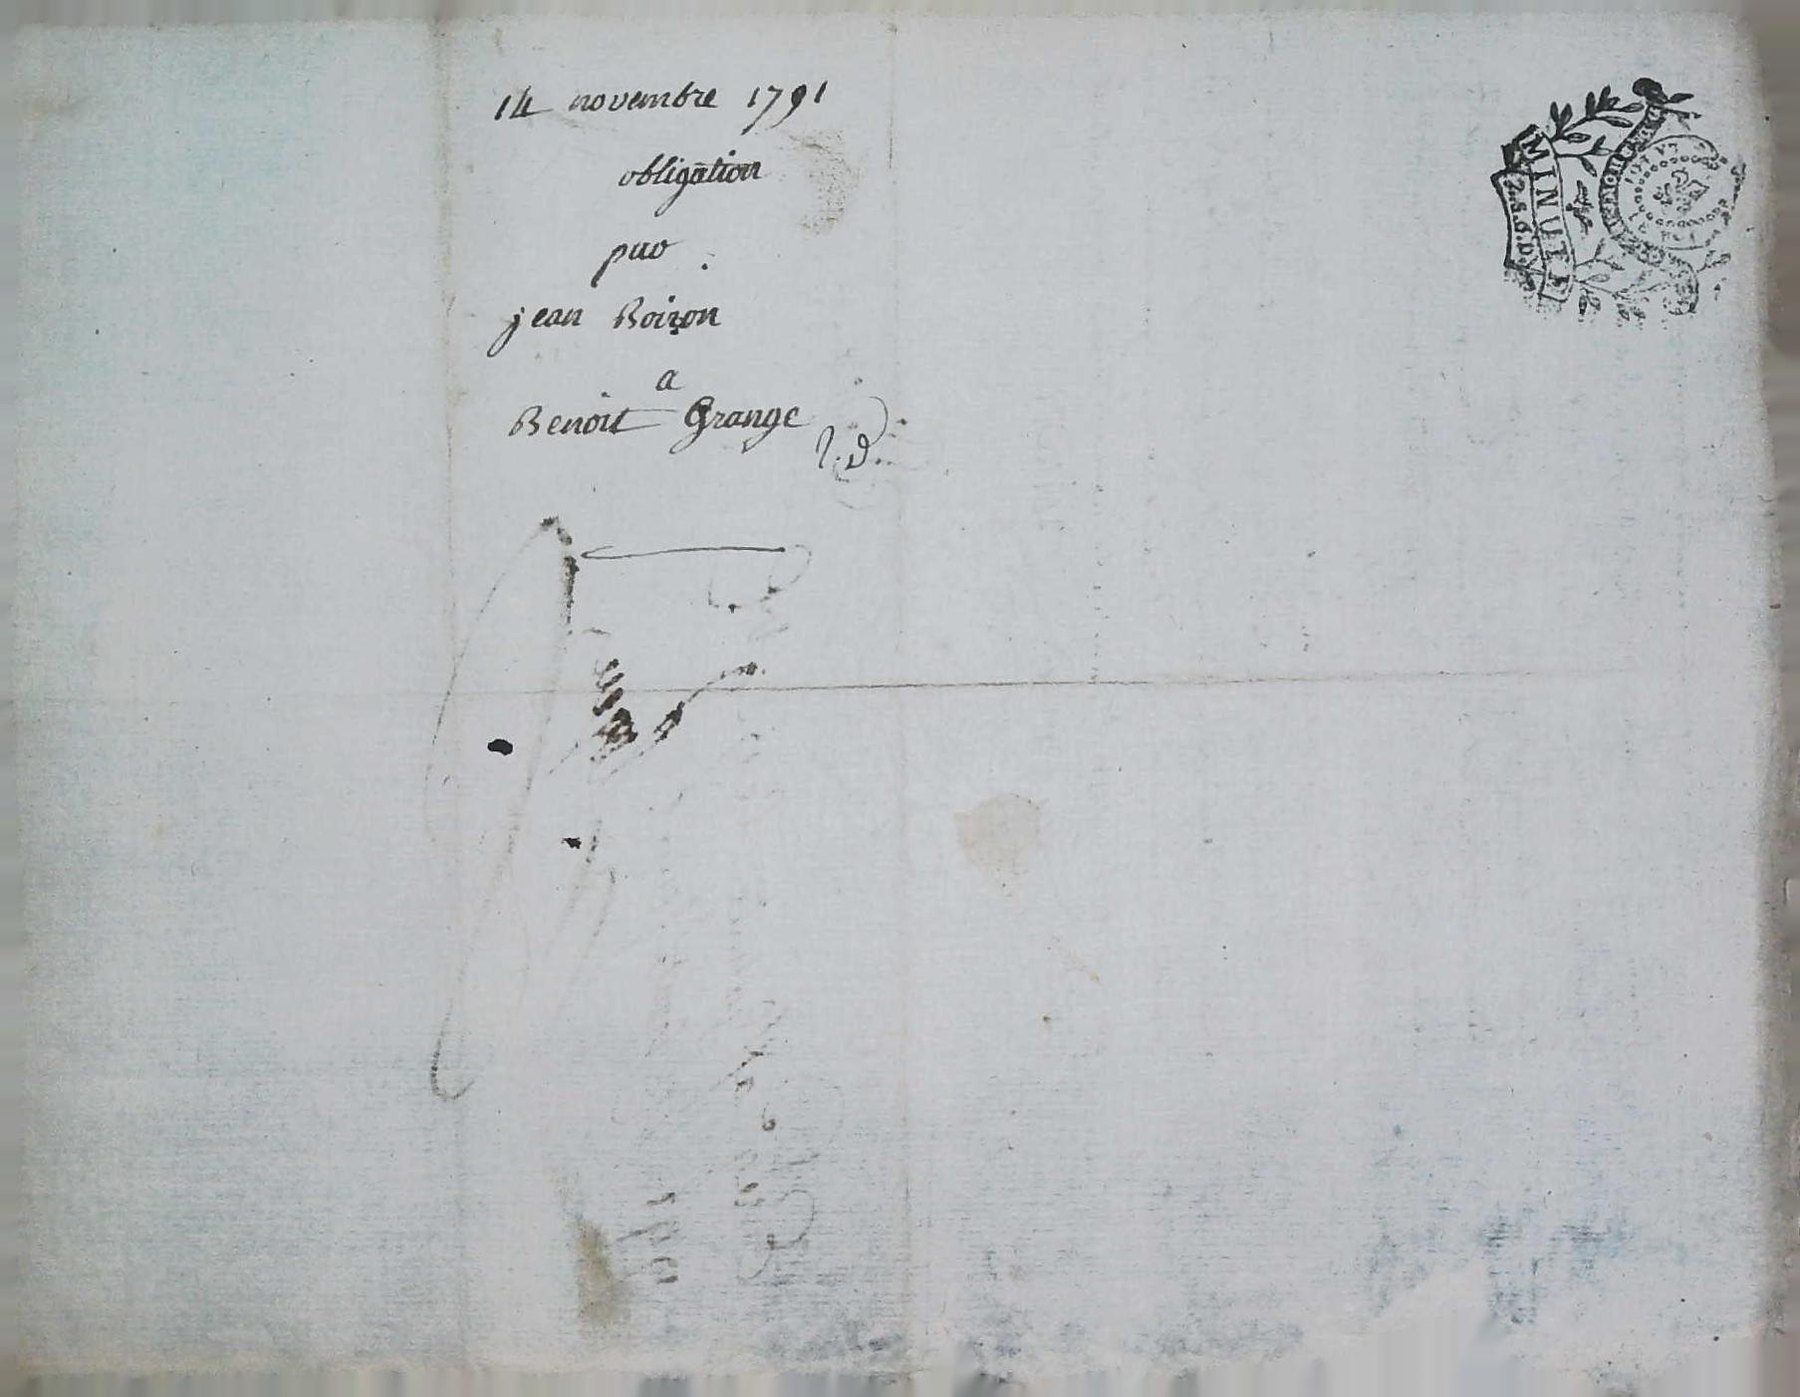 14 novembre 1791
obligation
puo
jean Boiron
a
Benoit Grange
MINUTE
2.S.6.D.